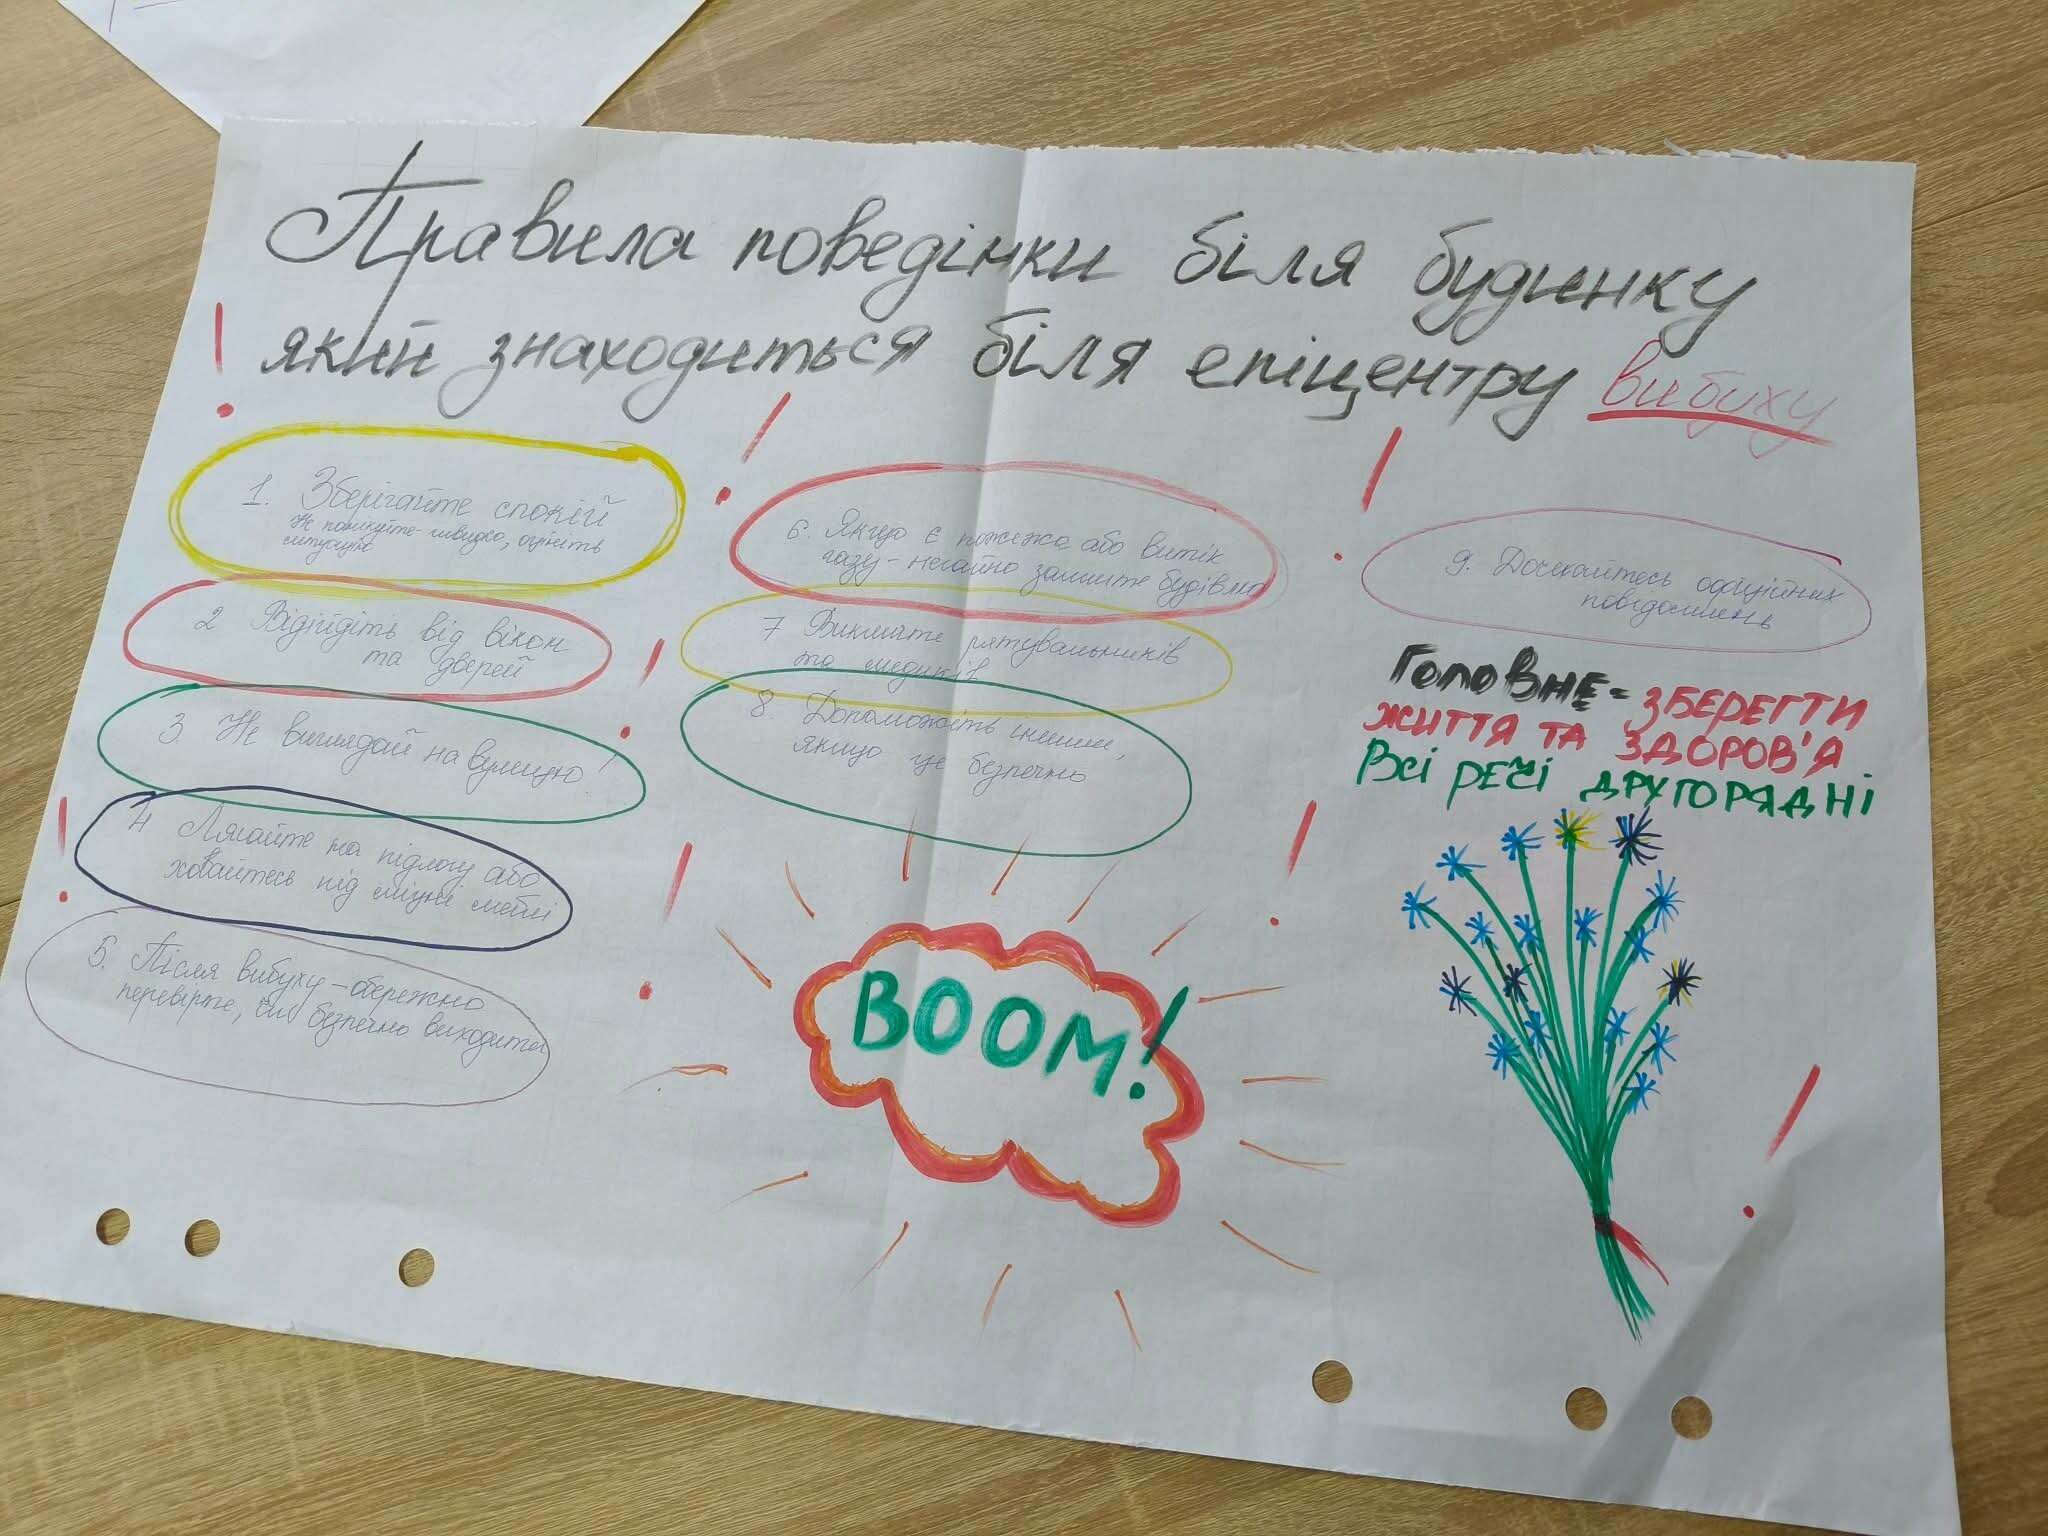 Правила поведінки біля будинку
який знаходиться біля епіцентру вибуху
1. Зберігайте спокій
Не панікуйте - швидко, оцініть
ситуацію
2 Відійдіть від вікон
та дверей
3. Не виглядай на вулицю!
4 Лягайте на підлогу або
ховайтесь під міцні меблі
5. Після вибуху - обережно
перевірте, чи безпечно виходити
6. Якщо є пожежа або витік
газу - негайно залиште будівлю
7 Викличте рятувальників
та медиків
8. Допоможіть іншим,
якщо це безпечно
9. Дочекайтесь офіційних
повідомлень
Головне - ЗБЕРЕГТИ
ЖИТТЯ ТА ЗДОРОВ'Я
Всі речі другорядні
BOOM!